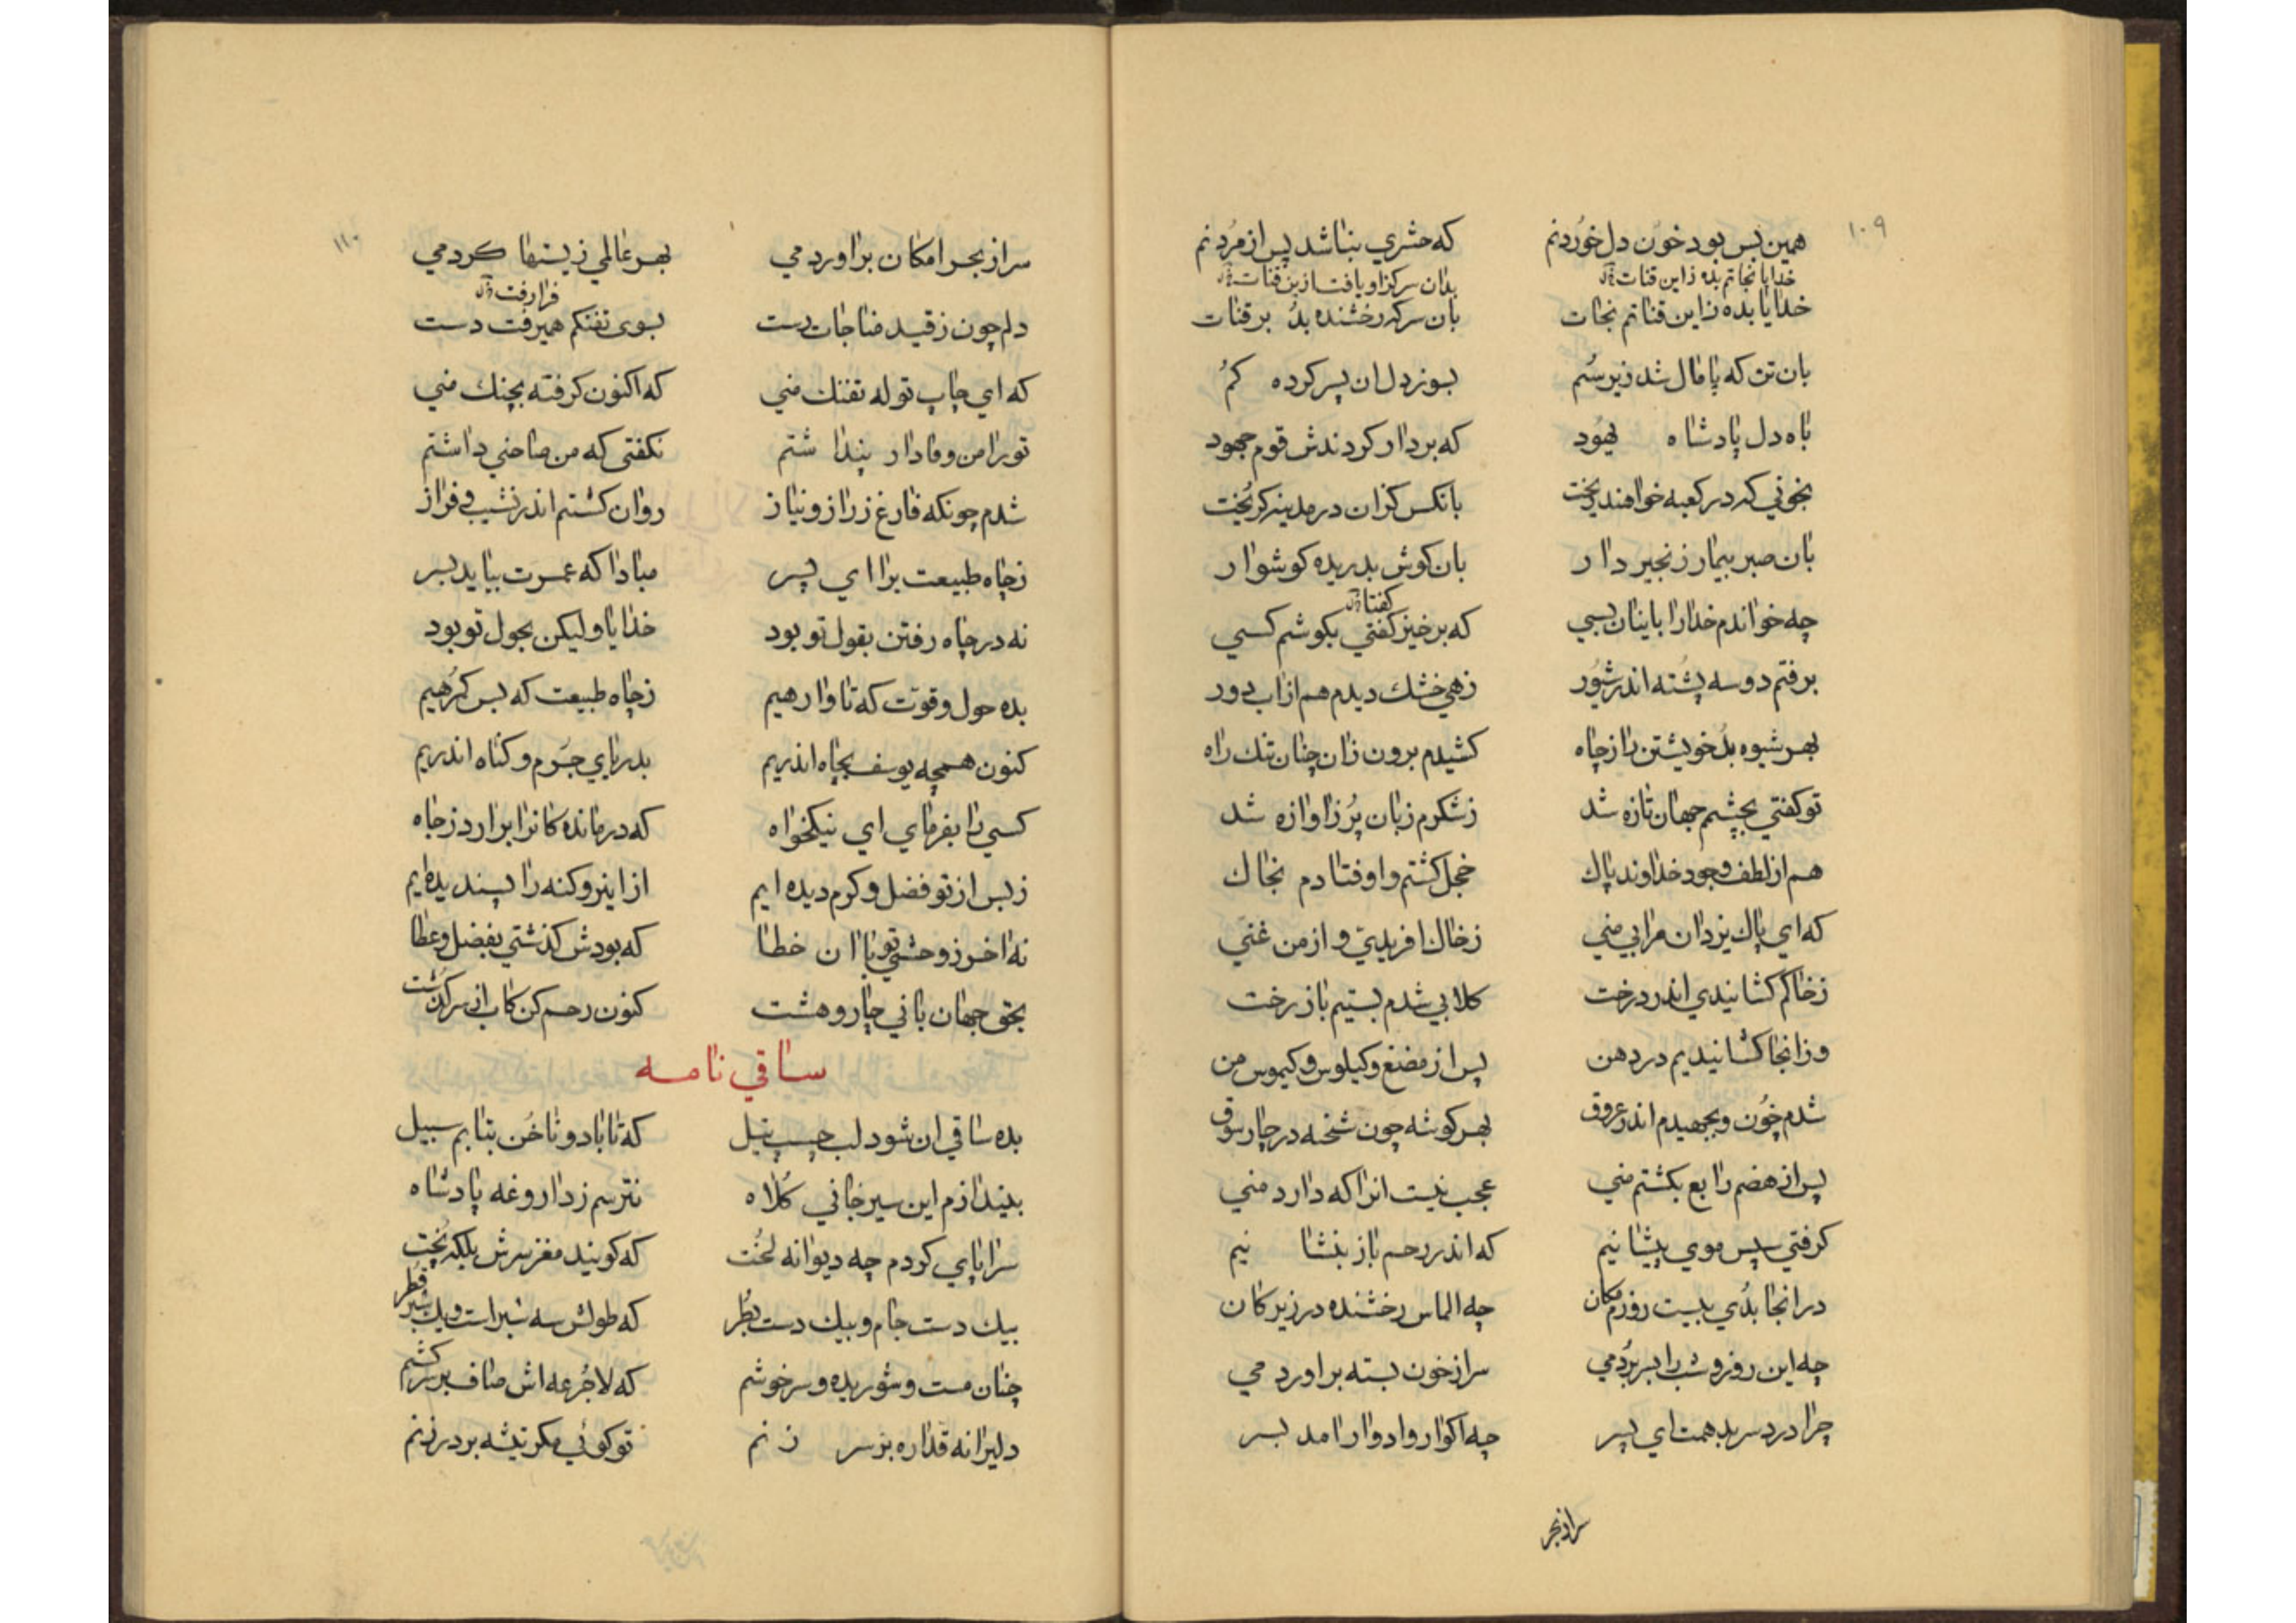 ۱۰۹
همین بس بود خون دل خوردنم که حشری نباشد پس از مردنم
خدایا نجاتم بده زاین قنات بدان سر کزاو یافت از بن قنات
خدایا بده زاین قناتم نجات بان سر که رخشنده بد بر قنات
بان تن که پامال شد زیر سم بسوز دل ان پسر کرده کم
باه دل پادشاه یهود که بردار کردندش قوم جهود
بخونی که در کعبه خواهند ریخت بانکس کزان در مدینه کریخت
بان صبر بیمار زنجیر دار بان کوش بدریده کوشوار
چه خواندم خدا را باینان بسی که برخیز کفتی بکوشم کسی
کفتا
برفتم دو سه پشته اندر شور زهی خشک دیدم هم از اب دور
بهر شیوه بد خویشتن را زچاه کشیدم برون زان چنان تنک راه
تو کفتی بچشمم جهان تازه شد زشکرم زبان پر زاوازه شد
هم از لطف وجود خداوند پاک خجل کشتم و اوفتادم بخاک
که ای پاک یزدان مرا بی منی زخاک افریدی و از من غنی
زخاکم کشانیدی اندر درخت کلابی شدم بستیم باز رخت
وزانجا کشانیدیم در دهن پس از مضغ و کیلوس و کیموس من
شدم خون و بجهیدم اندر عروق بهر کوشه چون شخنه در چارسوق
پس از هضم رابع بکشتم منی عجب نیست انرا که دارد منی
کرفتی سپس موی پیشانیم که اندر رحم باز بنشانیم
در انجا بدی بیست روزم مکان چه الماس رخشنده در زیر کان
چه این روز و شب را بسر بردمی سر از خون بسته براوردمی
چرا درد سر بدهمت ای پسر چه اکوار و ادوار امد بسر
سر از بحر
۱۱۰
سر از بحر امکان براوردمی بهر عالمی زیستها کردمی
فرا رفت
دلم چون زقید مناجات رست بسوی تفنکم همیرفت دست
که ای چاپ توله تفنک منی که اکنون کرفته بچنک منی
تو را من وفادار پنداشتم نکفتی که من صاحبی داشتم
شدم چونکه فارغ زراز و نیاز روان کشتم اندر نشیب و فراز
زچاه طبیعت برا ای پسر مبادا که عمرت بیاید بسر
نه در چاه رفتن بقول تو بود خدایا ولیکن بحول تو بود
بده حول و قوت که تا وارهیم زچاه طبیعت که بس کمرهیم
کنون همچه یوسف بچاه اندریم بدریای جرم و کناه اندریم
کسی را بفرمای ای نیکخواه که درمانده کانرا برارد زچاه
زبس از تو فضل و کرم دیده ایم از اینرو کنه را پسندیده ایم
نه اخر زوحشی تو با ان خطا که بودش کذشتی بفضل و عطا
بحق جهان بانی چار و هشت کنون رحم کن کاب از سر کذشت
ساقی نامه
بده ساقی ان شود لب چسب نیل که تا باد و ناخن بتابم سبیل
بیندازم این سیرجانی کلاه نترسم زداروغه پادشاه
سراپای کردم چه دیوانه لخت که کویند مغز سرش بلکه پخت
بیک دست جام و بیک دست بطر که طولش سه شبر است و یک شبر قطر
چنان مست و شوریده و سرخوشم که لاجرعه اش صاف بر سر کشم
دلیرانه قداره بر سر زنم تو کوئی مکر تیشه بر در زنم